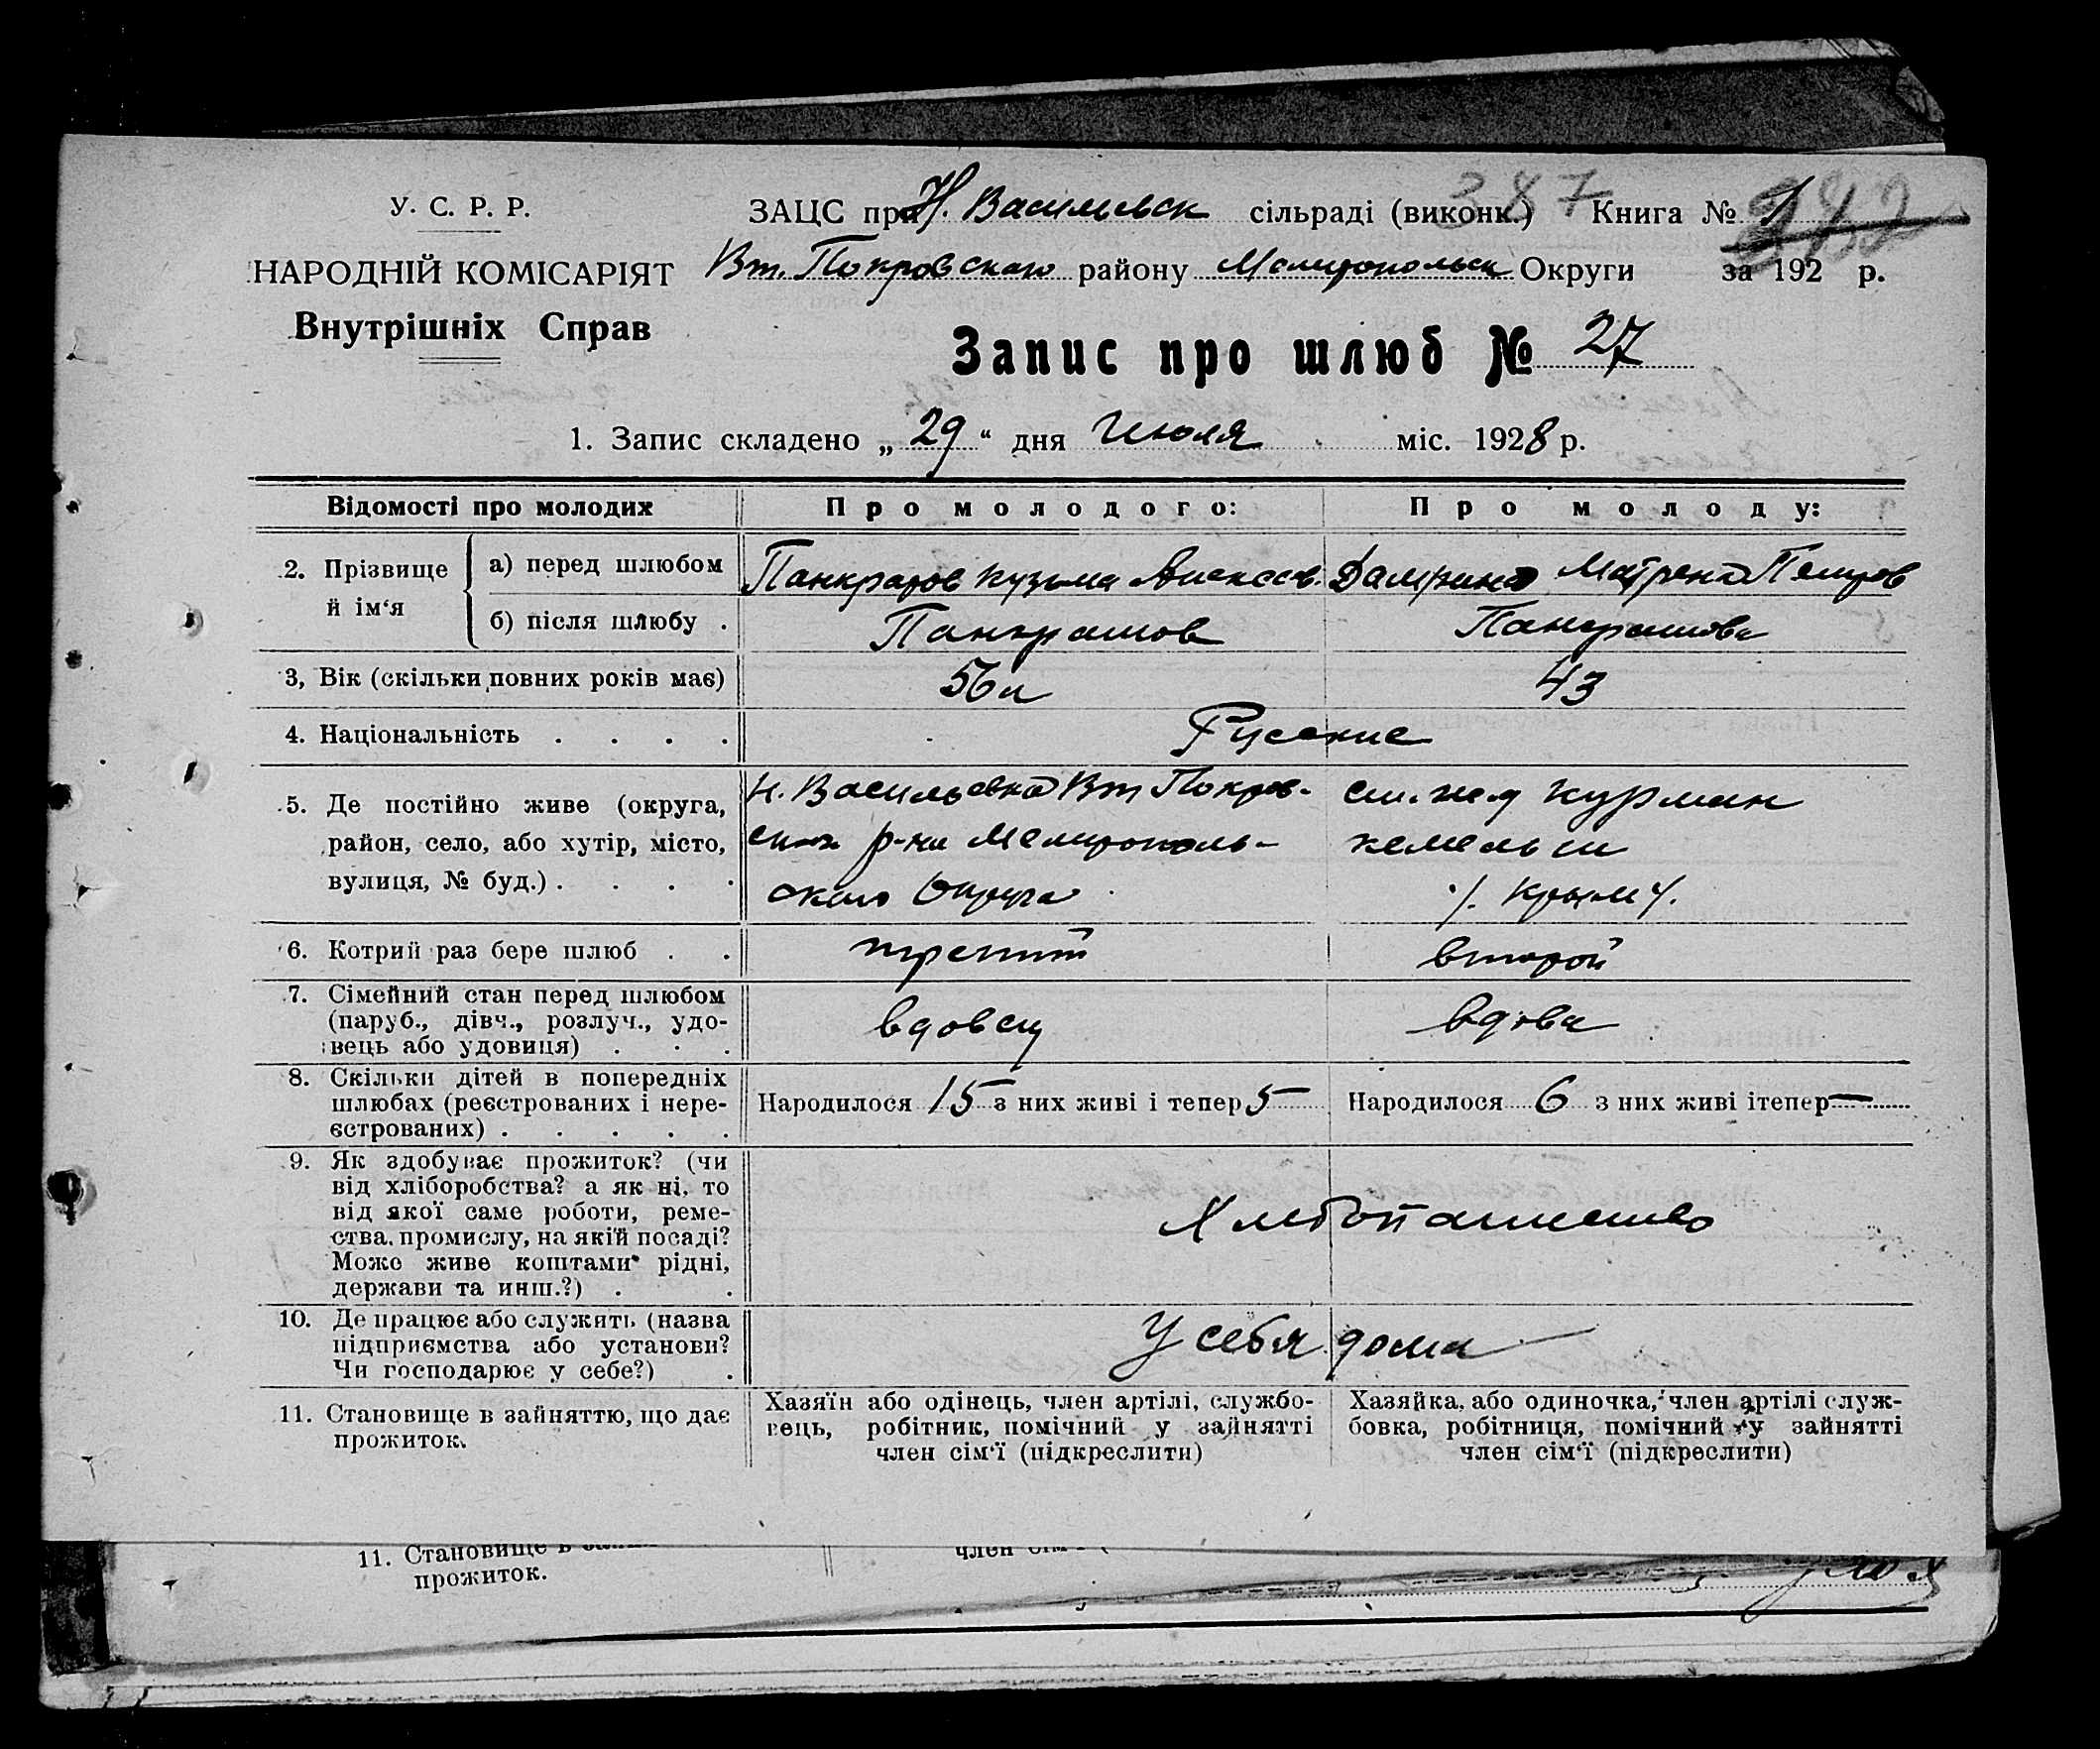 У. С. Р. Р.
НАРОДНІЙ КОМІСАРІЯТ
Внутрішніх Справ
387
ЗАЦС при Н. Васильевск сільраді (виконк.) Книга № 1
Вт. Покровскаго району Мелитопольск Округи за 192 р.
Запис про шлюб № 27
1. Запис складено „ 29 “ дня Июля міс. 1928 р.
Відомості про молодих
Про молодого:
Про молоду:
2. Прізвище й ім‘я
а) перед шлюбом
Панкратов Кузьма
Матрена Петров
б) після шлюбу .
Панкратов
Панкратова
3, Вік (скільки повних років має)
56 л
43
4. Національність . . . .
Русские
5. Де постійно живе (округа,
район, село, або хутір, місто,
вулиця, № буд.) . . . .
Н. Васильевка Вт Покров-
ской р-на Мелитополь-
ского Округа
ст. ж. д Курман
кемельчи
/. Крым /.
6. Котрий раз бере шлюб . .
третий
второй
7. Сімейний стан перед шлюбом
(паруб., дівч., розлуч., удо-
вець або удовиця) . . .
вдовец
вдова
8. Скільки дітей в попередніх
шлюбах (реєстрованих і нере-
єстрованих) . . . . .
Народилося 15 з них живі і тепер 5
Народилося 6 з них живі ітепер —
9. Як здобуває прожиток? (чи
від хліборобства? а як ні, то
від якої саме роботи, реме-
ства, промислу, на якій посаді?
Може живе коштами рідні,
держави та инш.?) . .
Хлебопашество
10. Де працює або служить (назва
підприємства або установи?
Чи господарює у себе?) .
У себя дома
11. Становище в зайняттю, що дає
прожиток.
Хазяїн або одінець, член артілі, службо-
вець, робітник, помічний у зайнятті
член сім‘ї (підкреслити)
Хазяйка, або одиночка, член артілі служ-
бовка, робітниця, помічний у зайнятті
член сім‘ї (підкреслити)
11. Становище в
прожиток.
член сім‘ї (